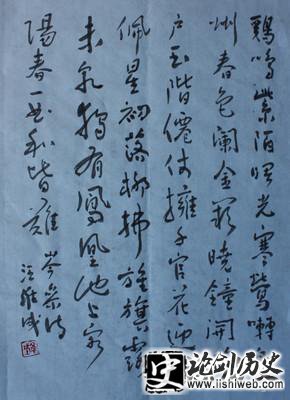 鷄鳴紫陌曙光寒鶯囀
州春色闌金闕曉鐘開
户玉階僊仗擁千官花迎
佩星初落柳拂旌旗露
未乾獨有鳳凰池上客
陽春一曲和皆難 岑參詩
史 论剑历史
www.lishiweb.com